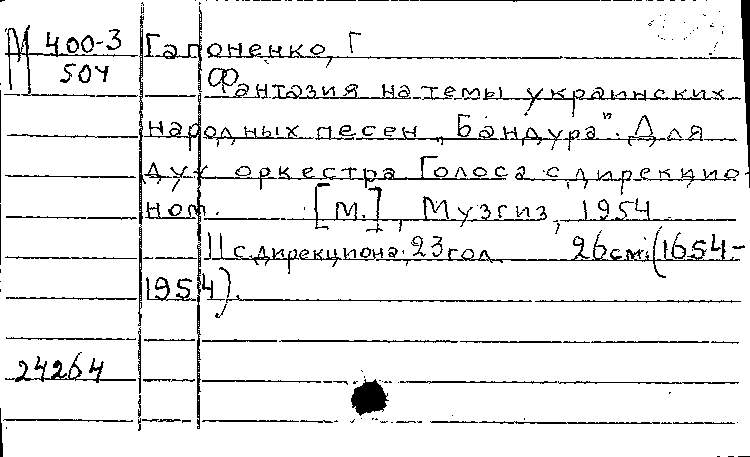 М 400-3 Гапоненко, Г
504 Фантазия на темы украинских
народных песен „Бандура". Для
дух оркестра Голоса с дирекцио-
ном. [М.], Музгиз, 1954
11 с дирекциона; 23 гол. 26 см. (1654-
1954).
24264